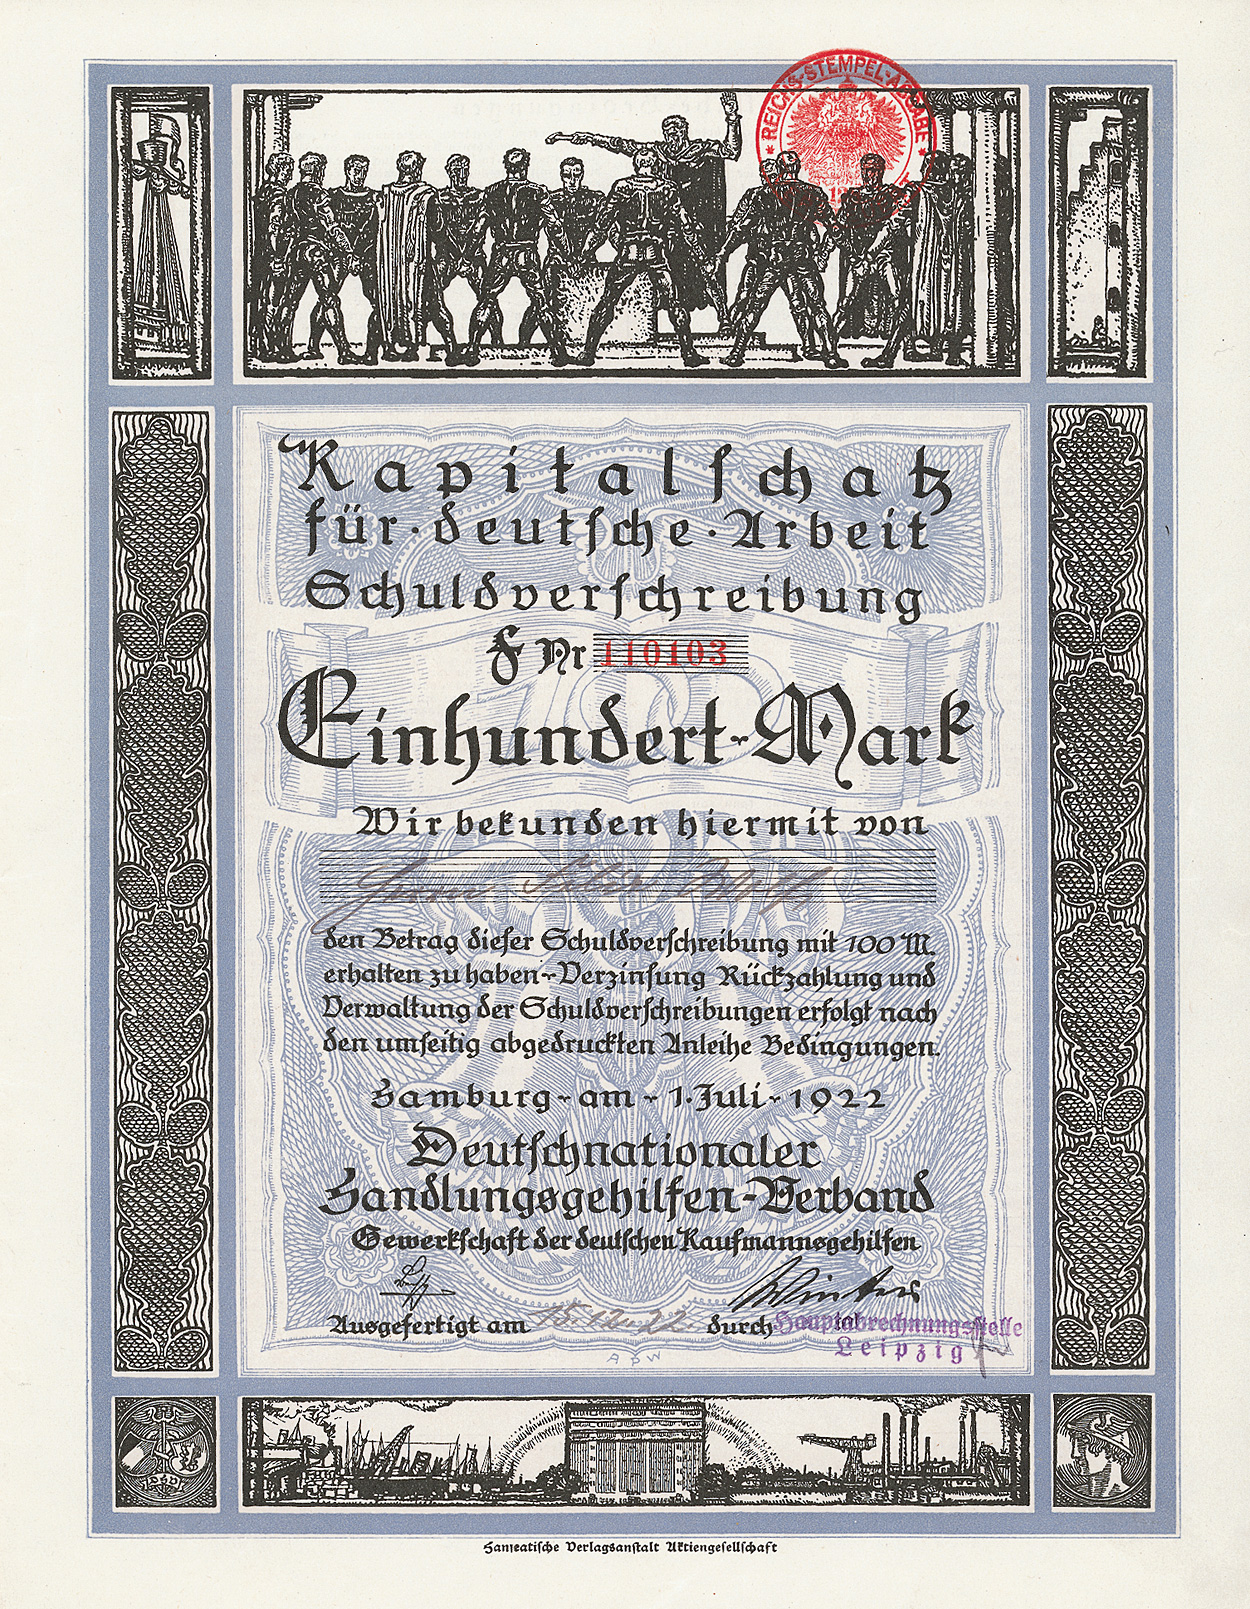 REICHS-STEMPEL-ABGABE
Kapitalſchatz
für · deutſche · Arbeit
Schuldverſchreibung
F Nr 110103
100
Einhundert-Mark
Wir bekunden hiermit von
Herrn
den Betrag dieſer Schuldverſchreibung mit 100 M.
erhalten zu haben-Verzinſung Rückzahlung und
Verwaltung der Schuldverſchreibungen erfolgt nach
den umſeitig abgedruckten Anleihe Bedingungen.
Hamburg - am - 1. Juli - 1922
Deutſchnationaler
Handlungsgehilfen-Verband
Gewerkſchaft der deutſchen Kaufmannsgehilfen
Ausgefertigt am 15.12.22 durch Hauptabrechnungsſtelle
Leipzig
APW
Hanſeatiſche Verlagsanſtalt Aktiengeſellſchaft